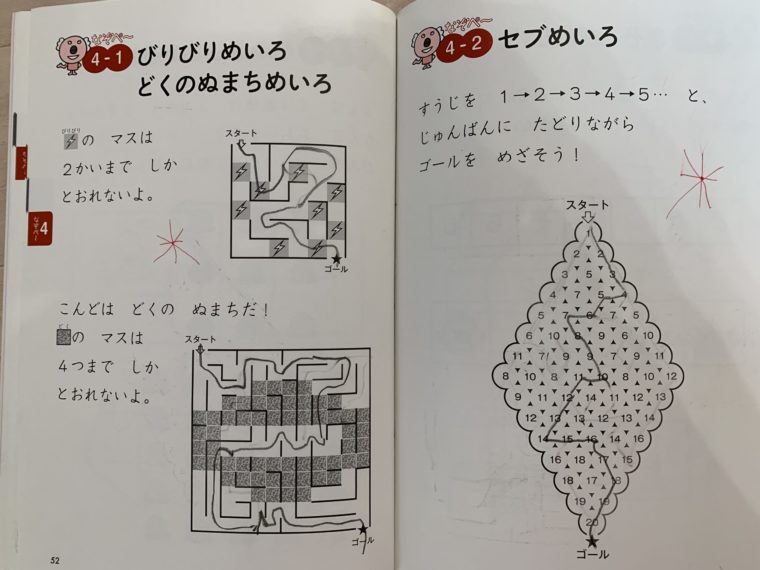 なぞペ～
4-1
びりびりめいろ
どくのぬまちめいろ
びりびり
の マスは
2かいまで しか
とおれないよ。
スタート
ゴール
なぞペー
4
こんどは どくの ぬまちだ！
どく
の マスは
4つまで しか
とおれないよ。
スタート
ゴール
52
なぞペ～
4-2
セブめいろ
すうじを 1→2→3→4→5… と、
じゅんばんに たどりながら
ゴールを めざそう！
スタート
1
2 2
3 5 3
4 7 5
5 7 6 7 5
6 10 8 9 10 6
11 7 9 9 7 11
8 10 11 11 10 8 10 12
9 11 12 14 11 9 13
12 13 12 13 14
14 15 16 14
16 18 17 15
18 17 18
19 19
20
ゴール